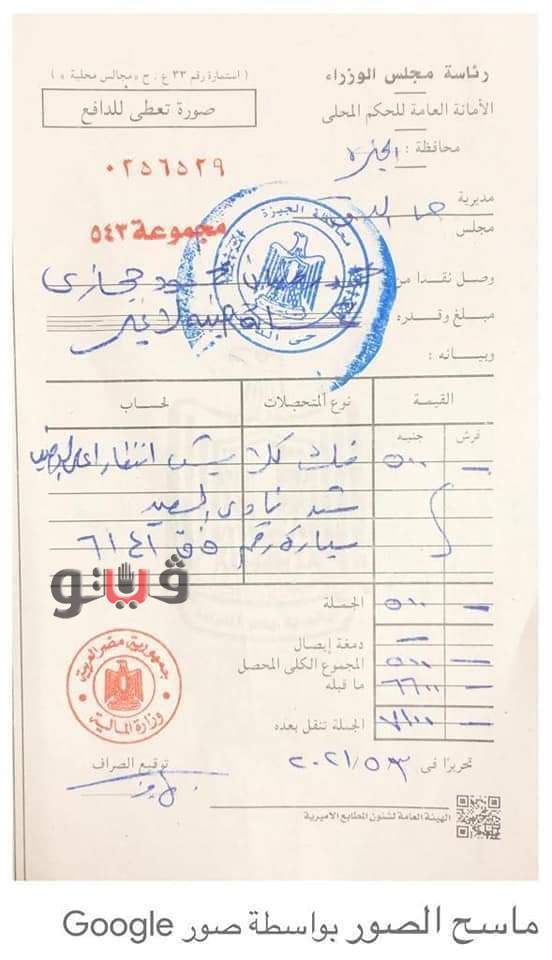 رئاسة مجلس الوزراء
( استمارة رقم ٣٣ ع . ح « مجالس محلية » )
الأمانة العامة للحكم المحلى
صورة تعطى للدافع
محافظة : الجيزة
٠٢٥٦٥٢٩
مديرية
مجلس حى الدقى
مجموعة ٥٤٣
محافظة الجيزة
وصل نقدا من محمود حجازى
مبلغ وقدره
وبيانه :
القيمة نوع المتحصلات لحساب
قرش جنيه
٥٠٠ فك كلابش انتظار
نادى الصيد
سيارة رقم ٦١٤٢
ڤيتو
الجملة ٥٠٠
دمغة إيصال
المجموع الكلى المحصل ٥٠٠
ما قبله ٦٦٠٠
الجملة تنقل بعده ٧١٠٠
جمهورية مصر العربية
وزارة المالية
تحريرًا فى ٢٠٢١/٥/٣
توقيع الصراف
الهيئة العامة لشئون المطابع الاميرية
ماسح الصور بواسطة صور Google